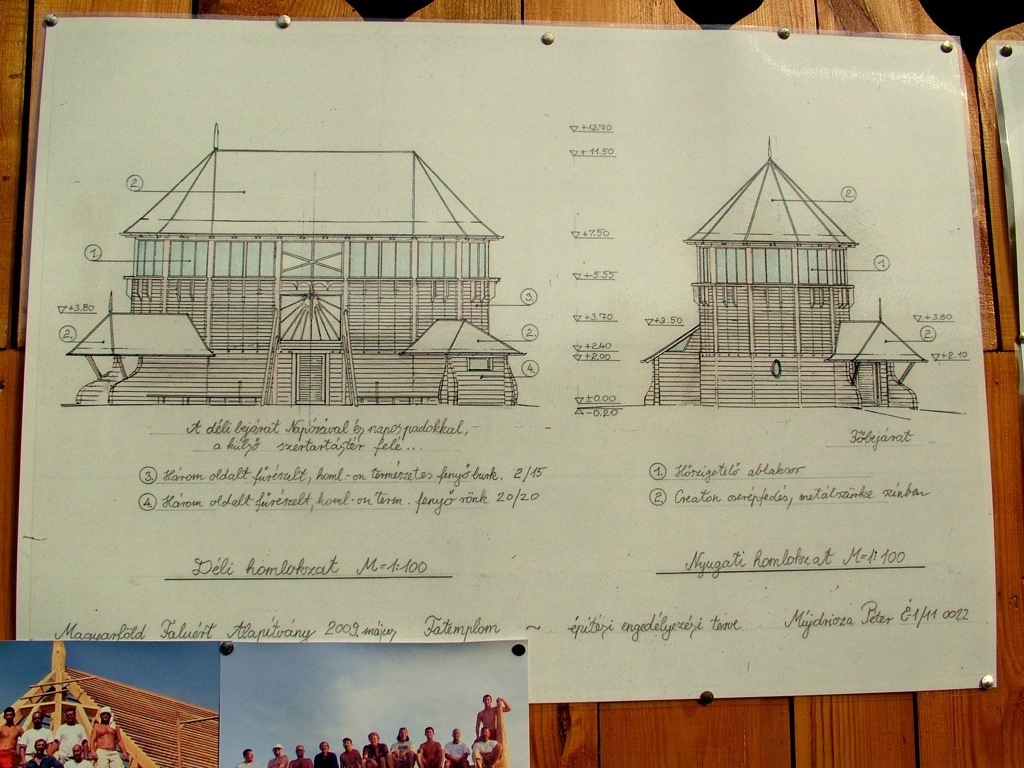 +12.70
+11.50
+7.50
+5.55
+3.70
+2.40
+2.00
±0.00
-0.20
2.
1.
+3.80
2.
3.
2.
4.
2.
1.
+3.50
+3.80
2.
+2.10
A déli bejárat Naporával és napos padokkal,
a külső szertartástér felé...
Főbejárat
3. Három oldalt fűrészelt, homl.-on természetes fenyő burk. 2/15
4. Három oldalt fűrészelt, homl.-on term. fenyő rönk 20/20
1. Hőszigetelő ablaksor
2. Creaton cserépfedés, metálszürke színben
Déli homlokzat M=1:100
Nyugati homlokzat M=1:100
Magyarföld Faluért Alapítvány 2009. május, Fatemplom ~ építési engedélyezési terve Péter É1/11 0022